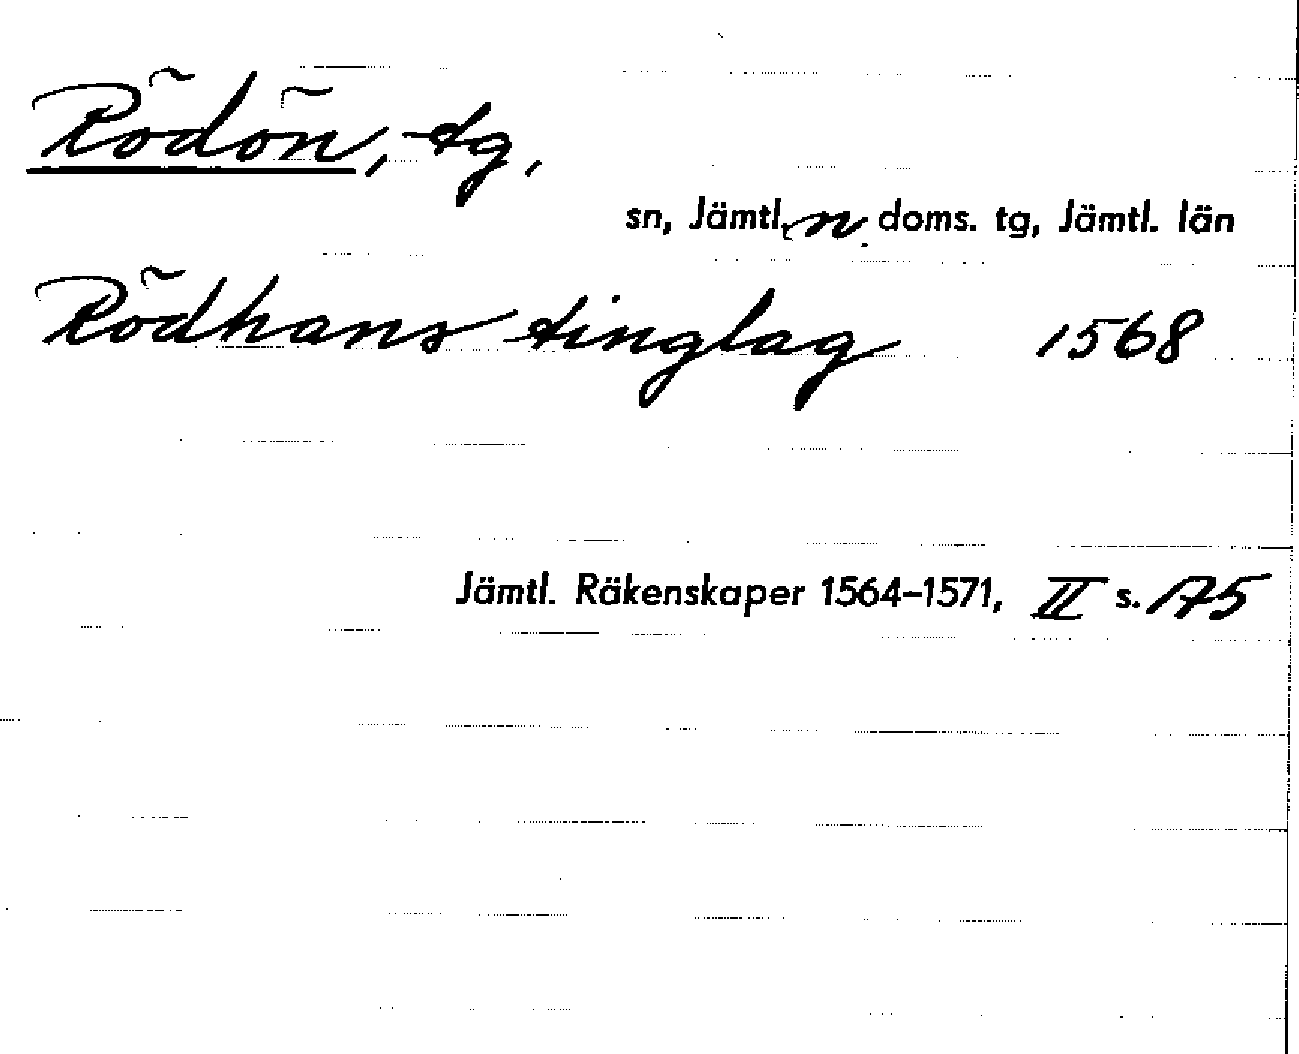 Rödön, tg,
sn, Jämtl. n. doms. tg, Jämtl. län
Rödhans tinglag 1568
Jämtl. Räkenskaper 1564-1571, II s. 175